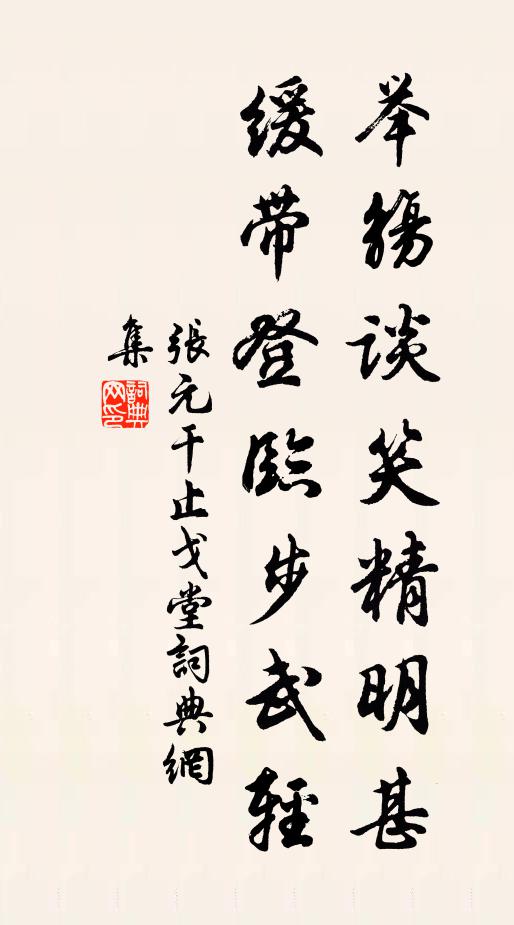 举觞谈笑精明甚
缓带登临步武轻
張元干止戈堂詞典網
集
詞典網印